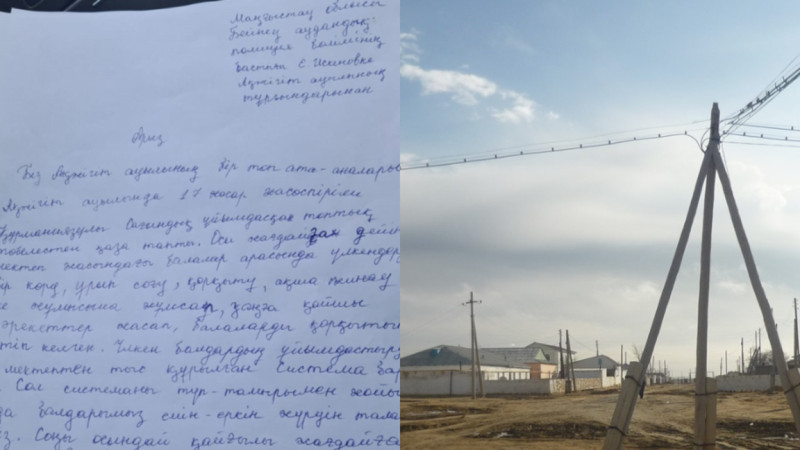 Маңғыстау облысы
Бейнеу аудандық
полиция бөлімінің
бастығы Е.
Ақжігіт ауылының
тұрғындарынан
Арыз
Біз Ақжігіт ауылының бір топ ата-аналары
Ақжігіт ауылында 17 жасар жасөспірім
Құрманғазұлы Сағындық ұйымдасқан топтық
төбелестен қаза тапты. Осы жағдайдан дейін
мектеп жасындағы балалар арасында үлкендер
көрд, ұрып соғу, қорқыту, ақша жинау
жұмысына жұмсап, заңға қайшы
әрекеттер жасап, балаларды қорқытып
келген. Үлкен балдардың ұйымдастыру
мектептен тыс құрылған система бар
Сол системаны түп-тамырымен жойып
балдарымыз еркін жүруін талап
Соңғы осындай қайғылы жағдайға